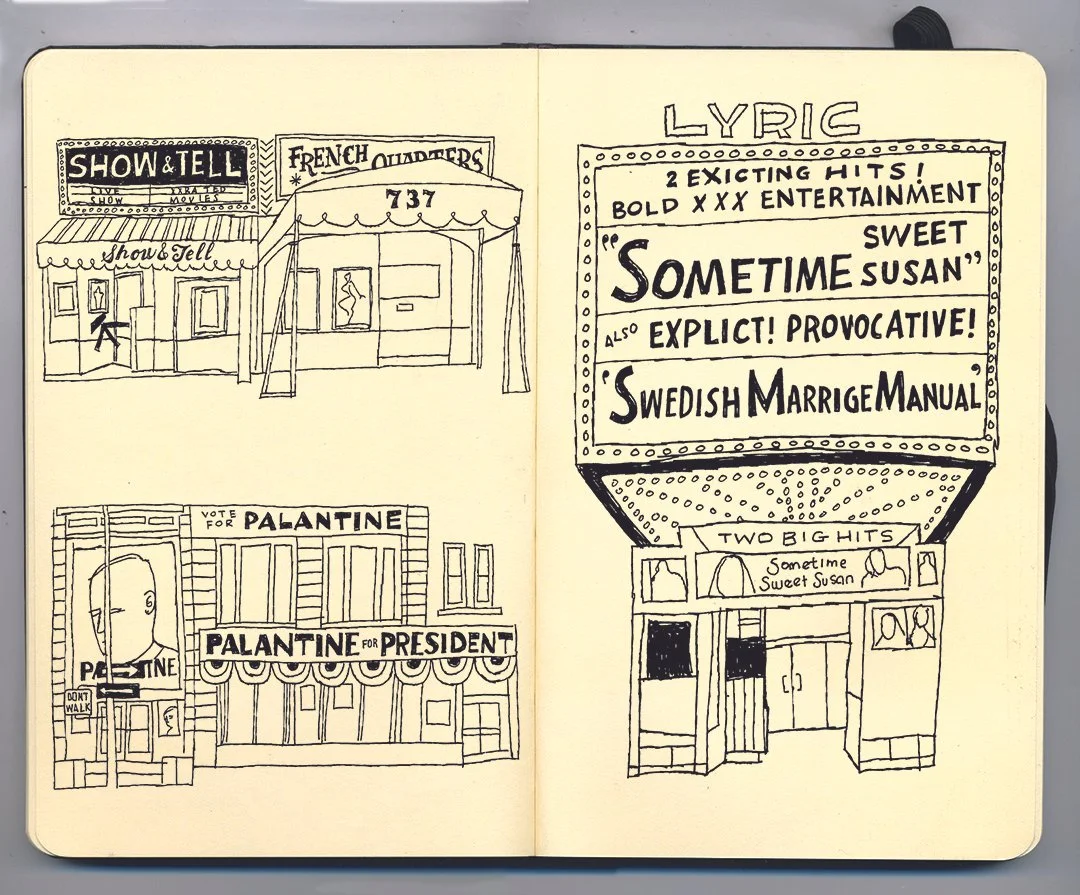 SHOW & TELL
LIVE SHOW
XRATED MOVIES
Show & Tell
FRENCH QUARTERS
737
VOTE FOR PALANTINE
PALANTINE FOR PRESIDENT
DON'T WALK
LYRIC
2 EXICTING HITS!
BOLD XXX ENTERTAINMENT
"SOMETIME SWEET SUSAN"
ALSO EXPLICT! PROVOCATIVE!
'SWEDISH MARRIGE MANUAL'
TWO BIG HITS
Sometime
Sweet Susan